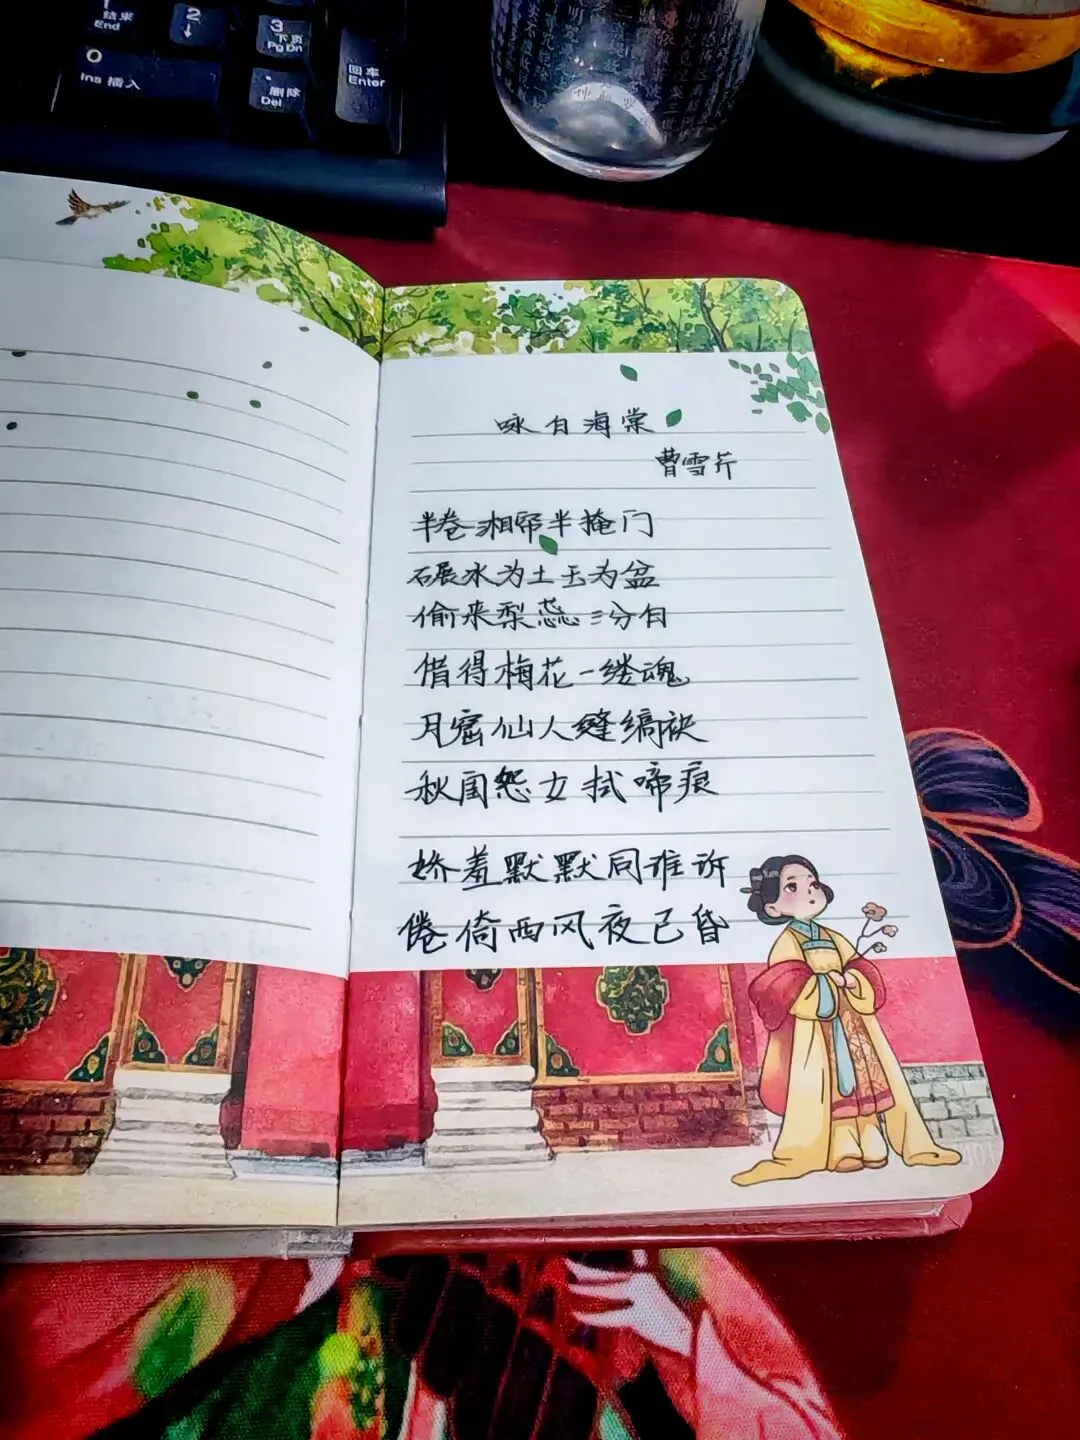 1 结束 End
2 ↓
3 下页 Pg Dn
0 Ins 插入
. 删除 Del
回车 Enter
咏白海棠
曹雪芹
半卷湘帘半掩门
碾冰为土玉为盆
偷来梨蕊三分白
借得梅花一缕魂
月窟仙人缝缟袂
秋闺怨女拭啼痕
娇羞默默同谁诉
倦倚西风夜已昏